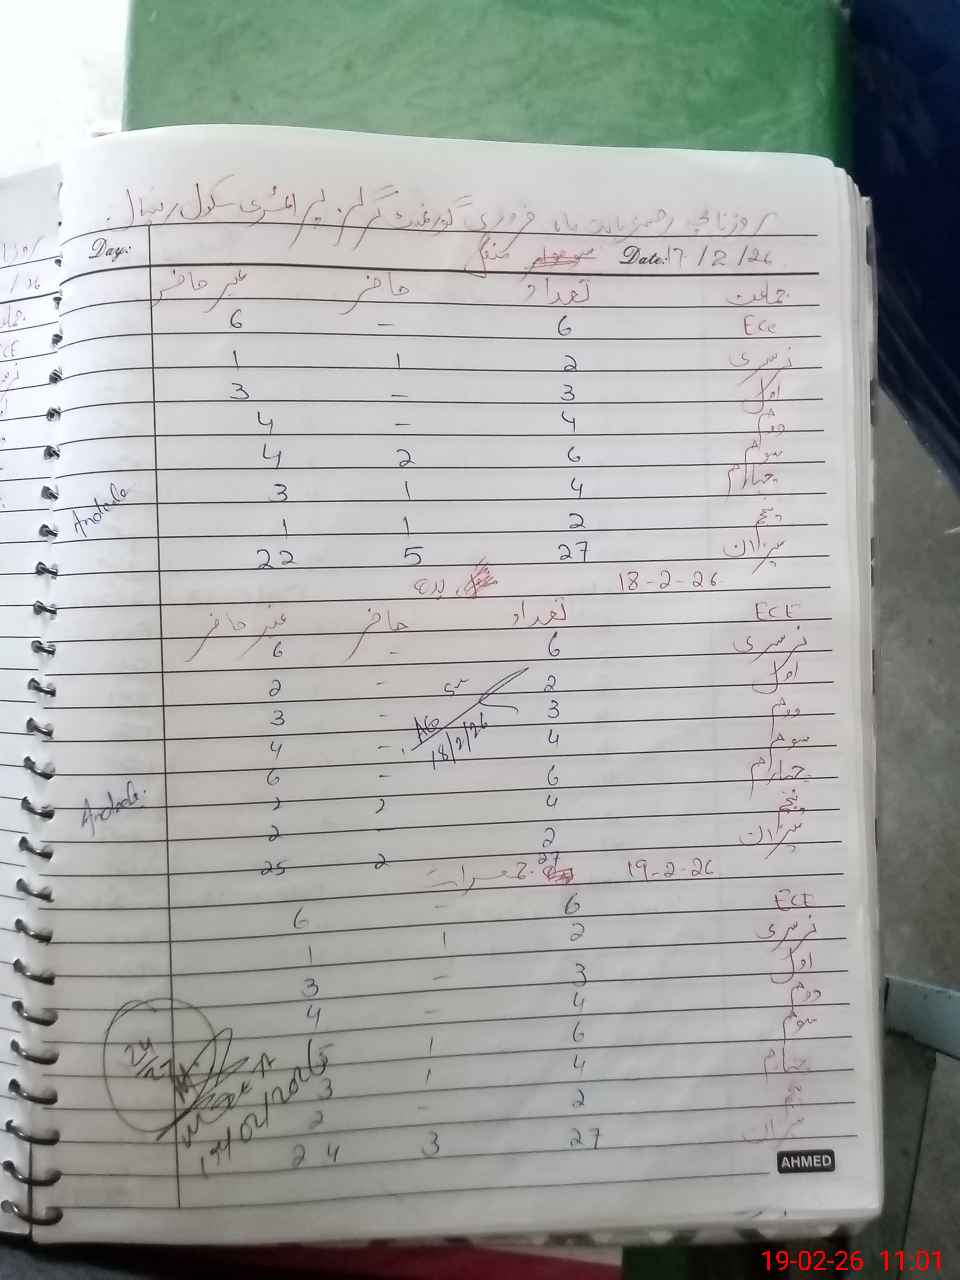 روزنامچہ رجسٹر بابت ماہ فروری گورنمنٹ گرلز پرائمری سکول
Day: منگل Date: 17/2/26
جماعت تعداد حاضر غیر حاضر
Ece 6 – 6
نرسری 2 1 1
اول 3 – 3
دوم 4 – 4
سوم 6 2 4
چہارم 4 1 3
پنجم 2 1 1
میزان 27 5 22
18-2-26 بدھ
ECE تعداد حاضر غیر حاضر
نرسری 6 - 6
اول 2 - 2
دوم 3 - 3
سوم 4 - 4
چہارم 6 - 6
پنجم 4 2 2
میزان 2 - 2
27 2 25
18/2/26
19-2-26 جمعرات
ECE 6 - 6
نرسری 2 1 1
اول 3 - 3
دوم 4 - 4
سوم 6 1 5
چہارم 4 1 3
پنجم 2 - 2
میزان 27 3 24
24/27
AHMED
19-02-26 11:01